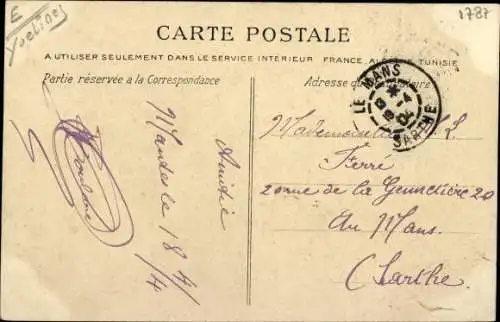 E
Yvelines
1787
CARTE POSTALE
A UTILISER SEULEMENT DANS LE SERVICE INTÉRIEUR FRANCE, TUNISIE
Partie réservée à la Correspondance
Adresse du
LE MANS
SARTHE
Amitié
Mantes le 18
Mademoiselle L.
Ferré
20 rue de la 20
Au Mans
(Sarthe